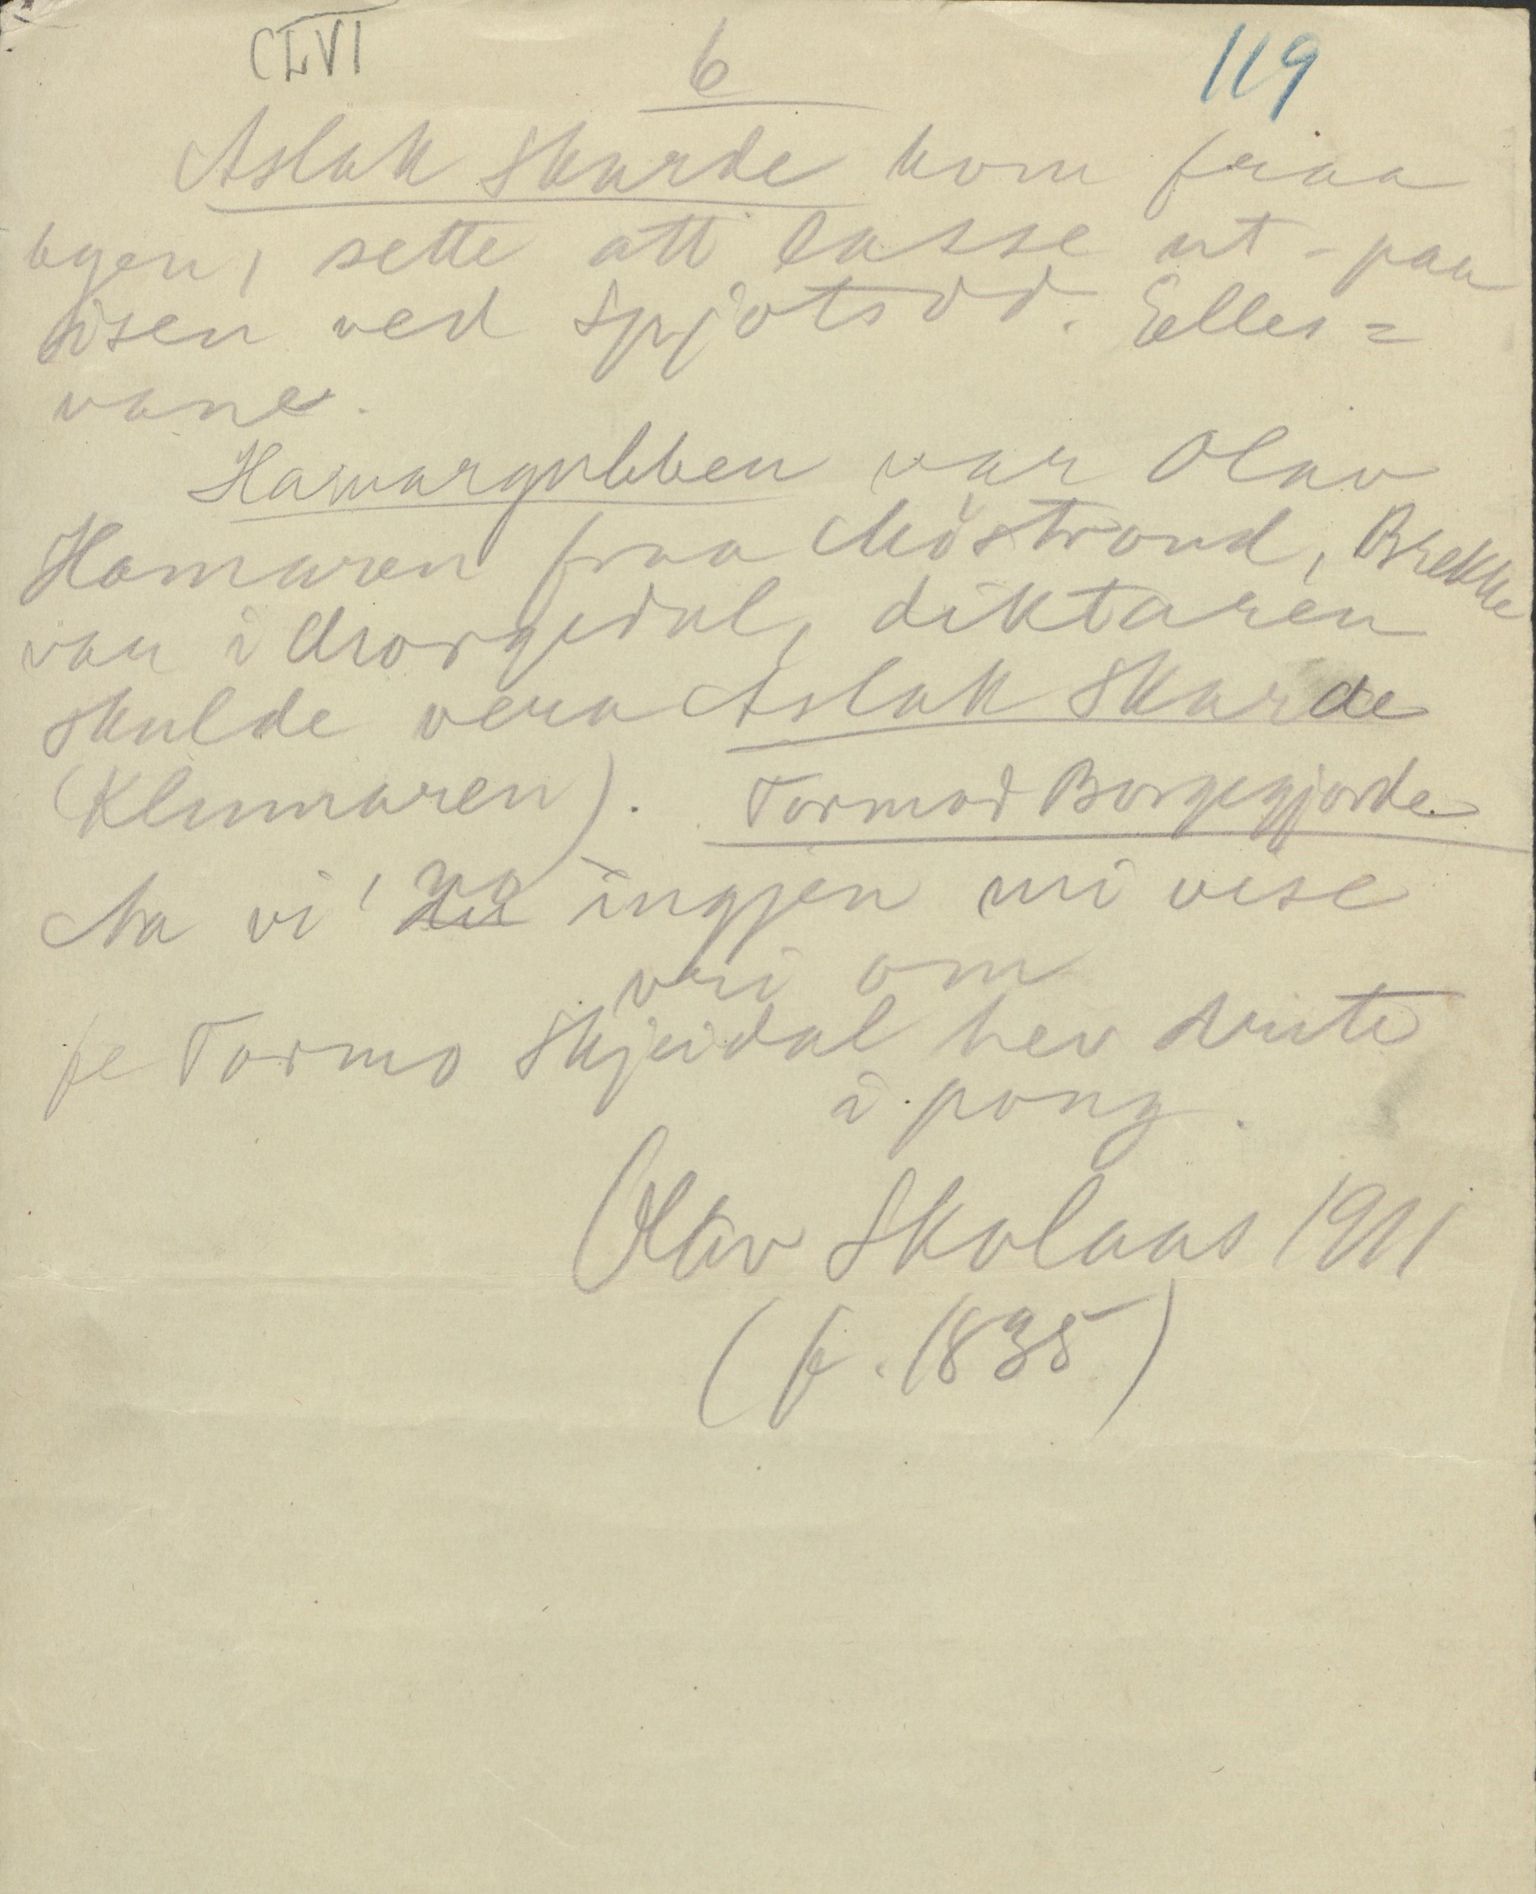 CLVI 6 119
Aslak Skarde kom fraa
byen, sette att lasse ut-paa
isen ved Spjotsodd. Elles=
vane.
Hamargubben var Olav
Hamaren fraa Möstrond, Brekke
var i Morgedal, diktaren
skulde vera Aslak Skarde
(Klumaren). Tormod Borgegjorde
Na vi' no ingjen mi vise
vri om
fe Tormo Skjeidal hev drite
i pong.
Olav Skolaas 1911
(f. 1835)